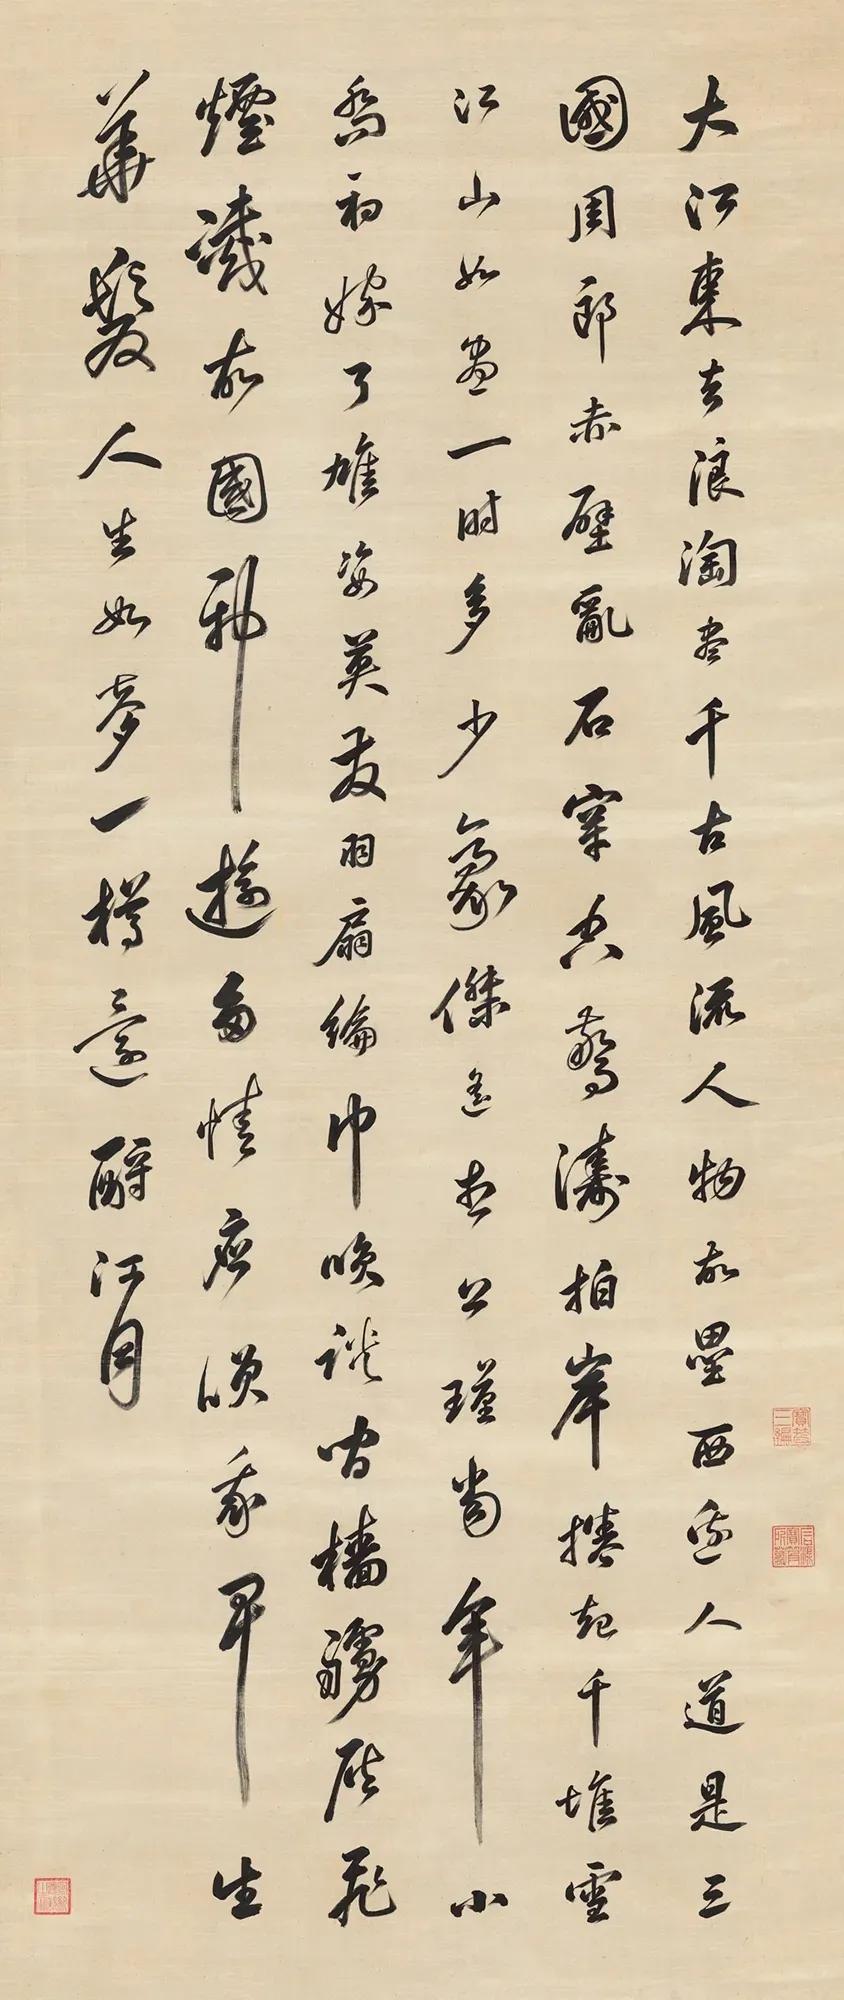 大江東去浪淘盡千古風流人物故壘西邊人道是三
國周郎赤壁亂石穿空驚濤拍岸捲起千堆雪
江山如畫一時多少豪傑遙想公瑾當年小
喬初嫁了雄姿英發羽扇綸巾咲談間檣艣灰飛
煙滅故國神遊多情應咲我早生
華髮人生如夢一樽還酹江月
寶笈三編